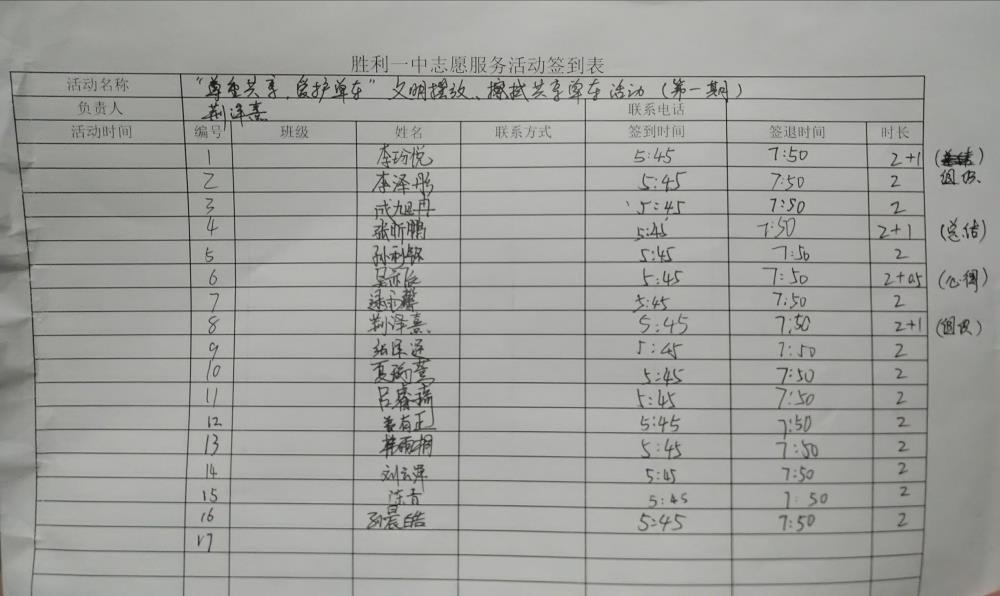 胜利一中志愿服务活动签到表
活动名称 “尊重共享、爱护单车”文明摆放、擦拭共享单车活动(第一期)
负责人 荆泽熹 联系电话
活动时间 编号 班级 姓名 联系方式 签到时间 签退时间 时长
1 李玢悦 5:45 7:50 2+1 (组织)
2 李泽彤 5:45 7:50 2
3 成旭冉 5:45 7:50 2
4 张昕鹏 5:45 7:50 2+1 (总结)
5 5:45 7:50 2
6 5:45 7:50 2+0.5 (心得)
7 5:45 7:50 2
8 荆泽熹 5:45 7:50 2+1 (组织)
9 5:45 7:50 2
10 5:45 7:50 2
11 吕睿琦 5:45 7:50 2
12 5:45 7:50 2
13 5:45 7:50 2
14 5:45 7:50 2
15 5:45 7:50 2
16 孙晨皓 5:45 7:50 2
17